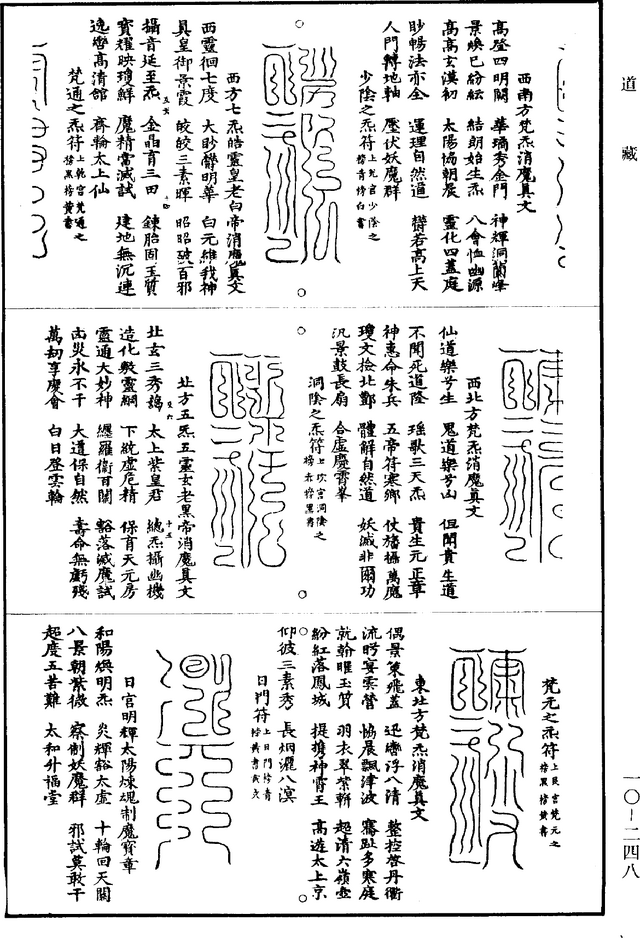 道藏
西南方梵炁消魔真文
高登四明闕　華璚秀金門　神輝洞蘭峰
景煥已紛紜　結朗始生炁　八會恤幽源
高高玄漠初　太陽協朝晨　靈化四蓋庭
眇暢法亦全　運理自然道　欝若高上天
人門轉地軸　壓伏妖魔群
少陰之炁符上兌宮少陰之
西方七炁皓靈皇老白帝消魔真文
西靈徊七度　大眇欝明華　白元維我神
真皇御景霞　皎皎三素暉　昭昭破百邪
攝音延至炁　金晶育三田　鍊胎固玉質
寶耀映瓊鮮　魔精當滅試　建地無沉連
逸轡高清館　齊輪太上仙
梵通之炁符上乾宮梵通之
西北方梵炁消魔真文
仙道樂兮生　鬼道樂兮凶　但聞貴生道
不聞死道隆　瑤歌三天炁　貴生元正章
神惠命朱兵　五帝符寒鄉　仗旛攝萬魔
瓊文檢北酆　體解自然道　妖滅非爾功
汎景鼓長扇　合虛慶霄峯
洞陰之炁符上坎宮洞陰之
北方五炁五靈玄老黑帝消魔真文
北玄三秀謁　太上紫皇君　總炁攝幽機
造化敷靈綱　下統虛危精　保育天元房
靈通大妙神　纏羅衞百關　豁落滅魔試
凶災永不干　大道保自然　壽命無虧殘
萬劫享慶會　白日登雲輪
梵元之炁符上艮宮梵元之
東北方梵炁消魔真文
偶景策飛蓋　迅轡浮八清　整控啓丹衢
流眄宴雲營　恊晨飄津波　騫趾多寒庭
就翰睚玉質　羽衣翠紫軿　超清六嶺壺
紛紅落鳳城　提攜神霄王　高遊太上京
仰彼三素秀　長烟灑八溟
日門符上日門
日宮明輝太陽煉魂制魔寶章
和陽煥明炁　炎輝豁太虛　十輪回天關
八景朝紫微　察制妖魔群　邪試莫敢干
超度五苦難　太和外福堂
一〇-二四八